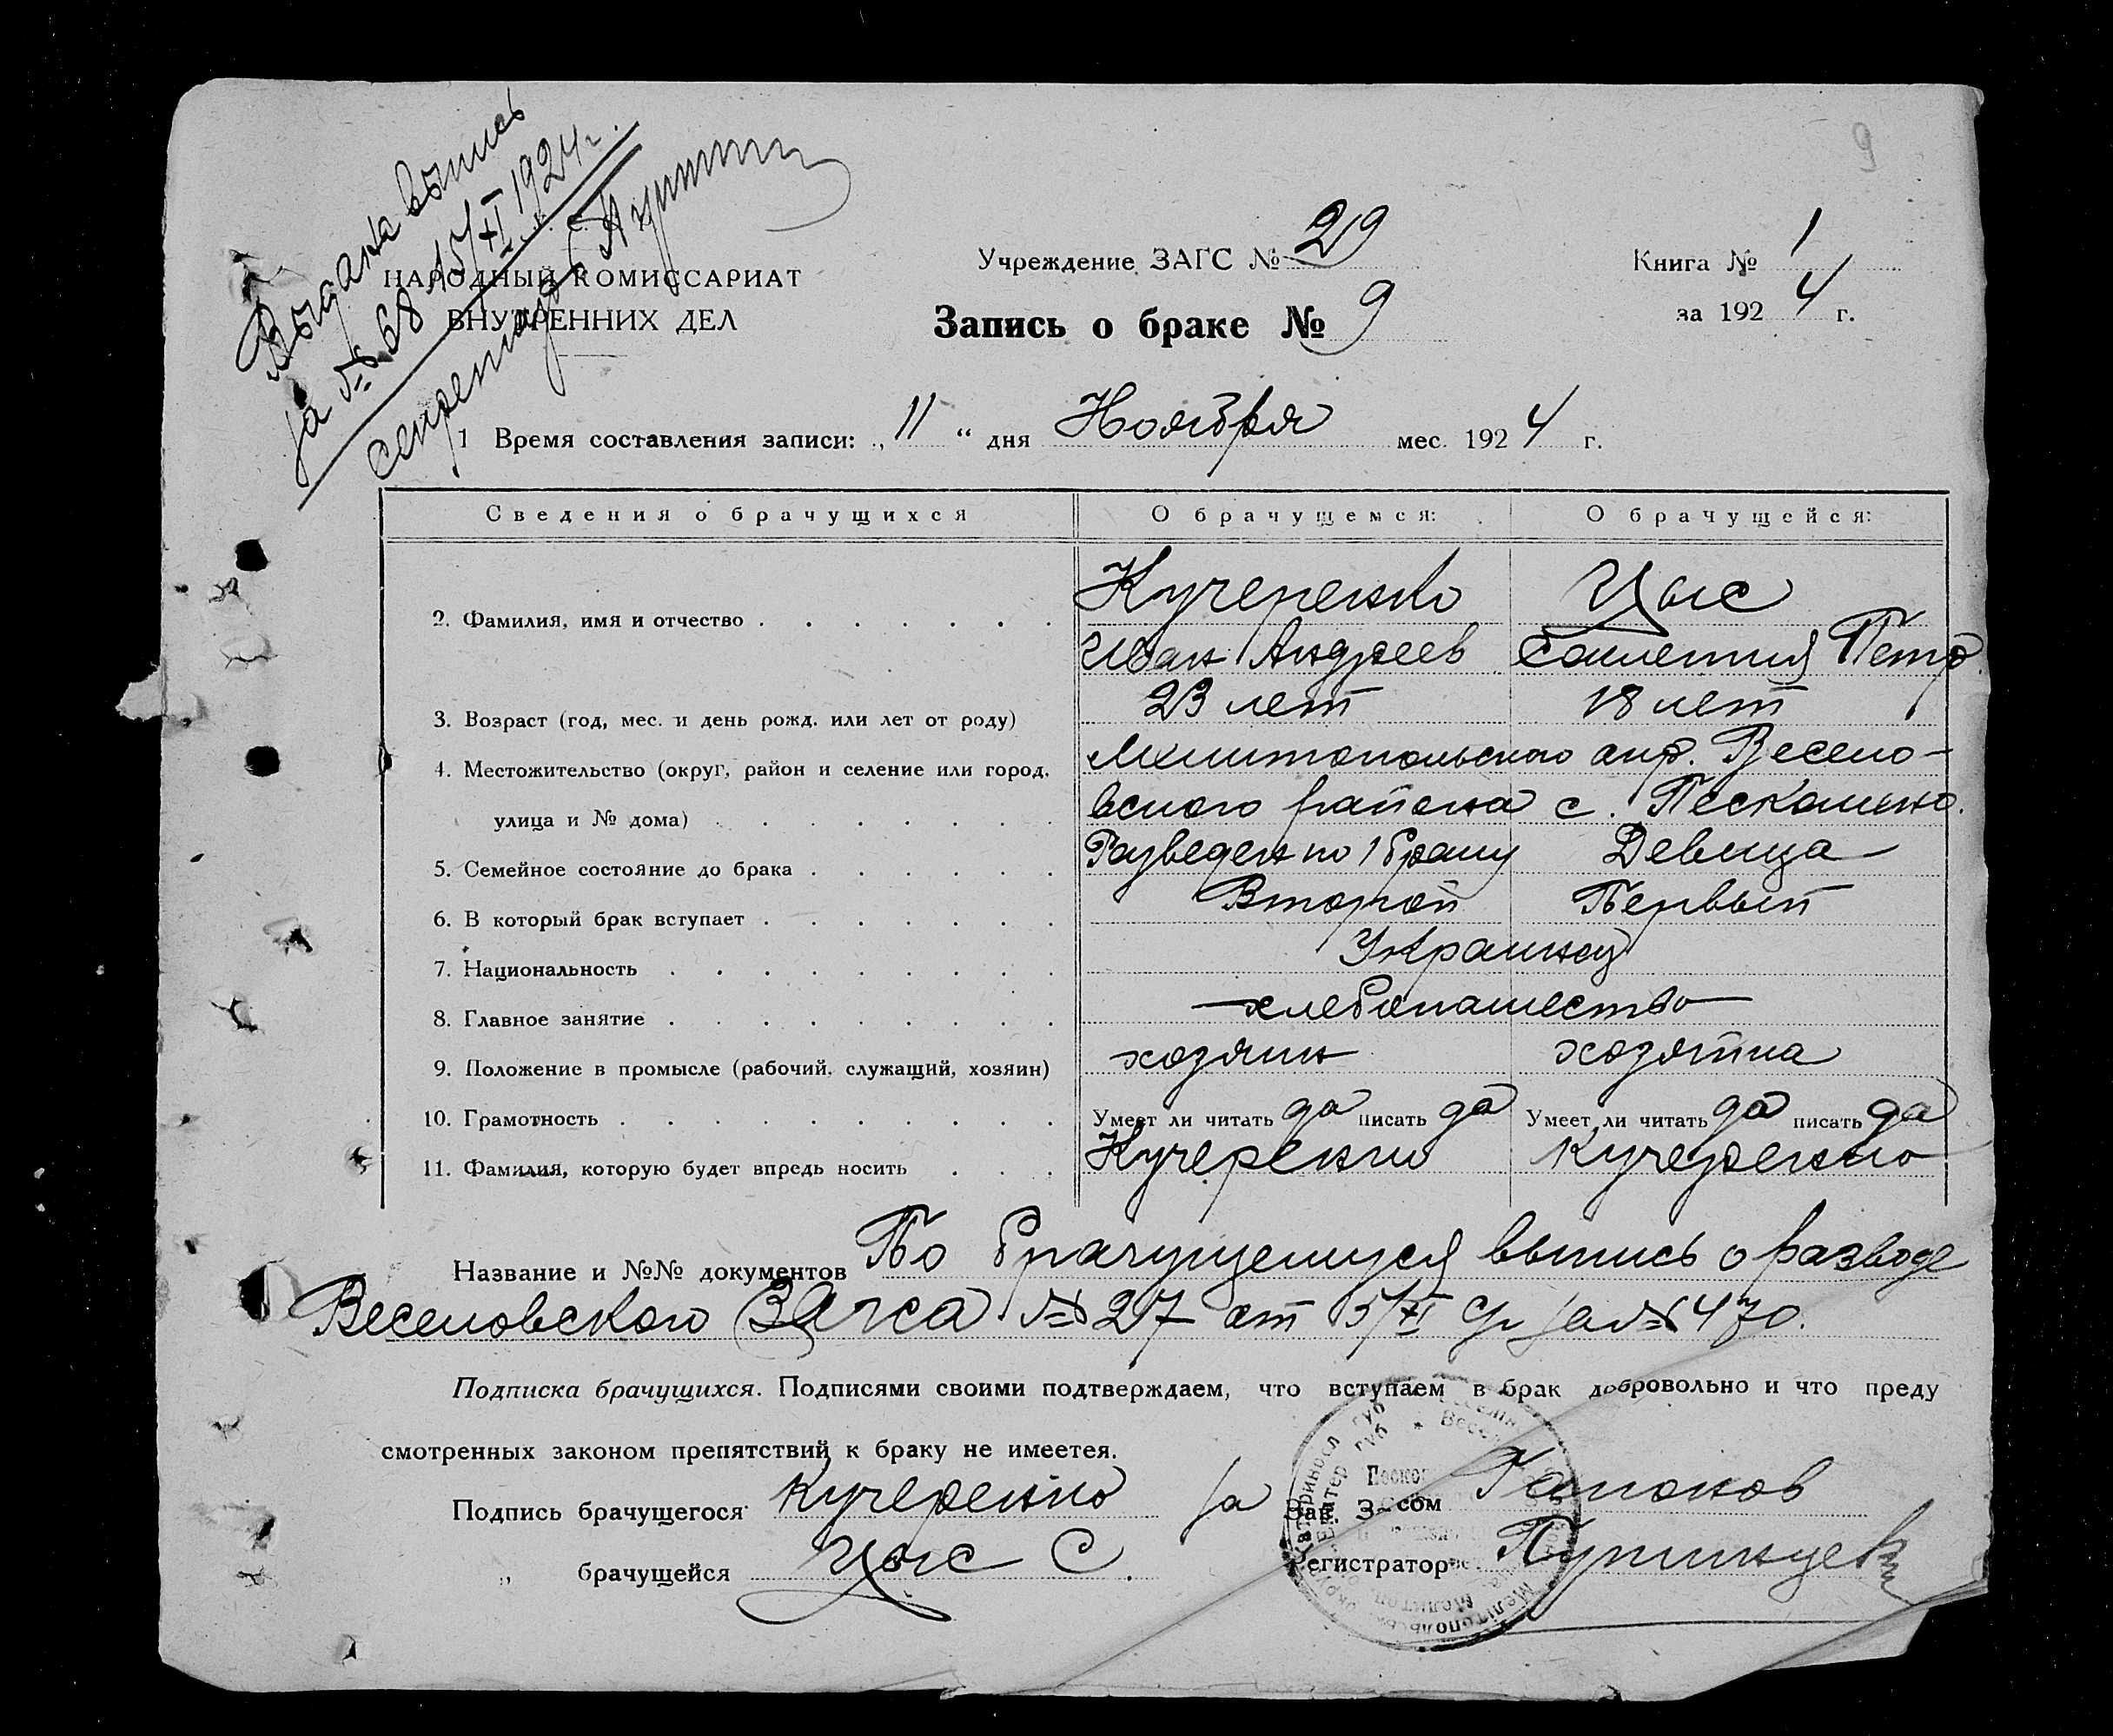 9
Выдана выпись
за № 68 15/XI 1924 г.
секретарь
НАРОДНЫЙ КОМИССАРИАТ
ВНУТРЕННИХ ДЕЛ
Учреждение ЗАГС № 29
Книга № 1
за 1924 г.
Запись о браке № 9
1 Время составления записи: „11“ дня Ноября мес. 1924 г.
Сведения о брачущихся О брачущемся: О брачущейся:
2. Фамилия, имя и отчество Кучеренко Цыс
Иван Андреев Петр.
3. Возраст (год, мес. и день рожд. или лет от роду) 23 лет 18 лет
4. Местожительство (округ, район и селение или город, Мелитопольского окр. Весело-
улица и № дома) вского района с. Пескошино.
5. Семейное состояние до брака Разведен по 1 браку Девица
6. В который брак вступает Второй Первый
7. Национальность Украинцы
8. Главное занятие хлебопашество
9. Положение в промысле (рабочий, служащий, хозяин) хозяин хозяйка
10. Грамотность Умеет ли читать да писать да Умеет ли читать да писать да
11. Фамилия, которую будет впредь носить Кучеренко Кучеренко
Название и №№ документов По брачущемуся выпись о разводе
Веселовского Загса № 27 от 5/XI за № 470.
Подписка брачущихся. Подписями своими подтверждаем, что вступаем в брак добровольно и что преду
смотренных законом препятствий к браку не имеетея.
Подпись брачущегося Кучеренко За Зав. З-сом Гапонов
„ брачущейся Цыс С. Регистратор